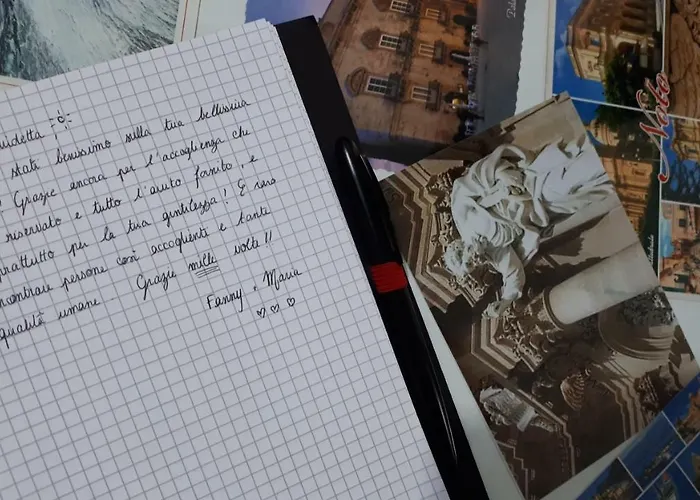 uidetta
benissimo sulla tua bellissima
! Grazie ancora per l'accoglienza che
riservato e tutto l'aiuto fornito, e
prattutto per la tua gentilezza! È raro
ncontrare persone così accoglienti e tante
qualità umane. Grazie mille volte!!
Fanny + Maria
♡ ♡ ♡
Noto